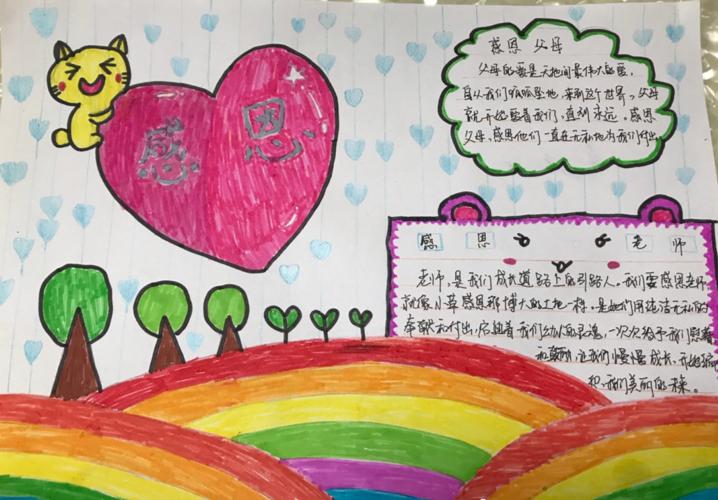 感恩
感恩 父母
父母的爱是天地间最伟大的爱,
自从我们呱呱坠地,来到这个世界,父母
就开始爱着我们,直到永远。感恩
父母,感恩他们一直在无私地为我们付出
感 恩 老 师
老师,是我们成长道路上的引路人。我们要感恩老师
就像小草感恩那博大的土地一样,是她们用纯洁无私的
奉献和付出,着我们幼小的灵魂,一次次给予我们
和,让我们慢慢成长,开始
织我们美丽的